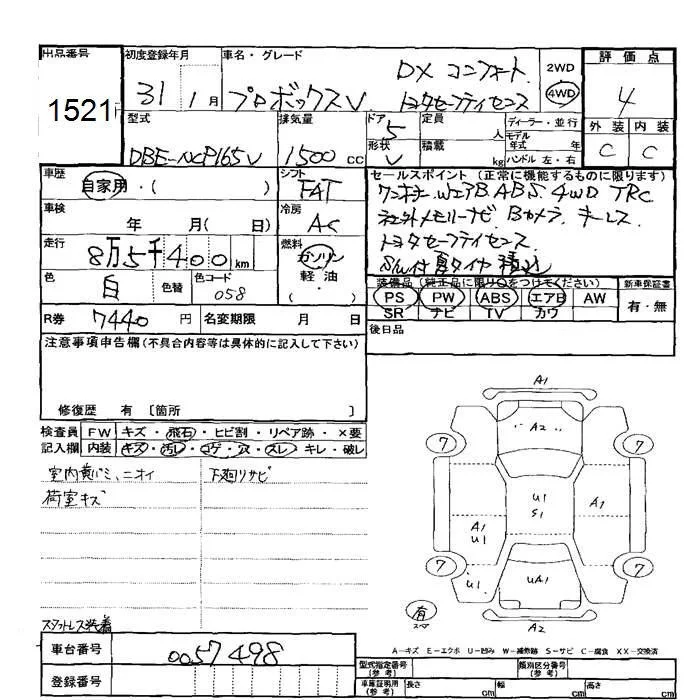 出品番号 初度登録年月 車名・グレード DX コンフォート 2WD 評価点
1521 31 1月 プロボックスV トヨタセーフティセンス 4WD 4
型式 排気量 ドア 定員 ディーラー・並行 外装 内装
DBE-NCP165V 1500cc 5 人 モデル 年式 年 C C
形状 V 積載 kg ハンドル 左・右
車歴 シフト セールスポイント (正常に機能するものに限ります)
自家用・( ) FAT ワンオーナー.WエアB ABS. 4WD TRC
車検 冷房 社外メモリーナビ. Bカメラ. キーレス.
年 月( 日) AC トヨタセーフティセンス
走行 燃料 S/W付夏タイヤ積込
8万5千400km ガソリン
色 白 色替 色コード 058 軽油・( ・ )
装備品 (純正品に限り○をつけてください) 新車保証書
PS PW ABS エアB AW 有・無
SR ナビ TV カワ
R券 7440 円 名変期限 月 日 後日品
注意事項申告欄(不具合内容等は具体的に記入して下さい)
修復歴 有 [箇所 ]
検査員 FW キズ・飛石・ヒビ割・リペア跡・×要
記入欄 内装 キズ・汚レ・コゲ・穴・スレ・キレ・破レ
室内黄バミ、ニオイ 下廻リサビ
荷室キズ
A1
A2
7 7
U1
S1
A1
A1
U1
7 7
U1
UA1
有
スペア
A2
スタットレス装着
車台番号 0057498
登録番号
A-キズ E-エクボ U-凹み W-補修跡 S-サビ C-腐食 XX-交換済
型式指定番号 (参考) 類別区分番号 (参考)
車庫証明用 (参考) 長さ cm 幅 cm 高さ cm